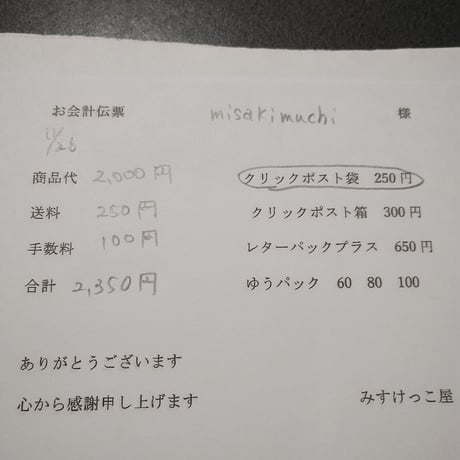 お会計伝票 misakimuchi 様
11/26
商品代 2,000円 クリックポスト袋 250円
送料 250円 クリックポスト箱 300円
手数料 100円 レターパックプラス 650円
合計 2,350円 ゆうパック 60 80 100
ありがとうございます
心から感謝申し上げます みすけっこ屋